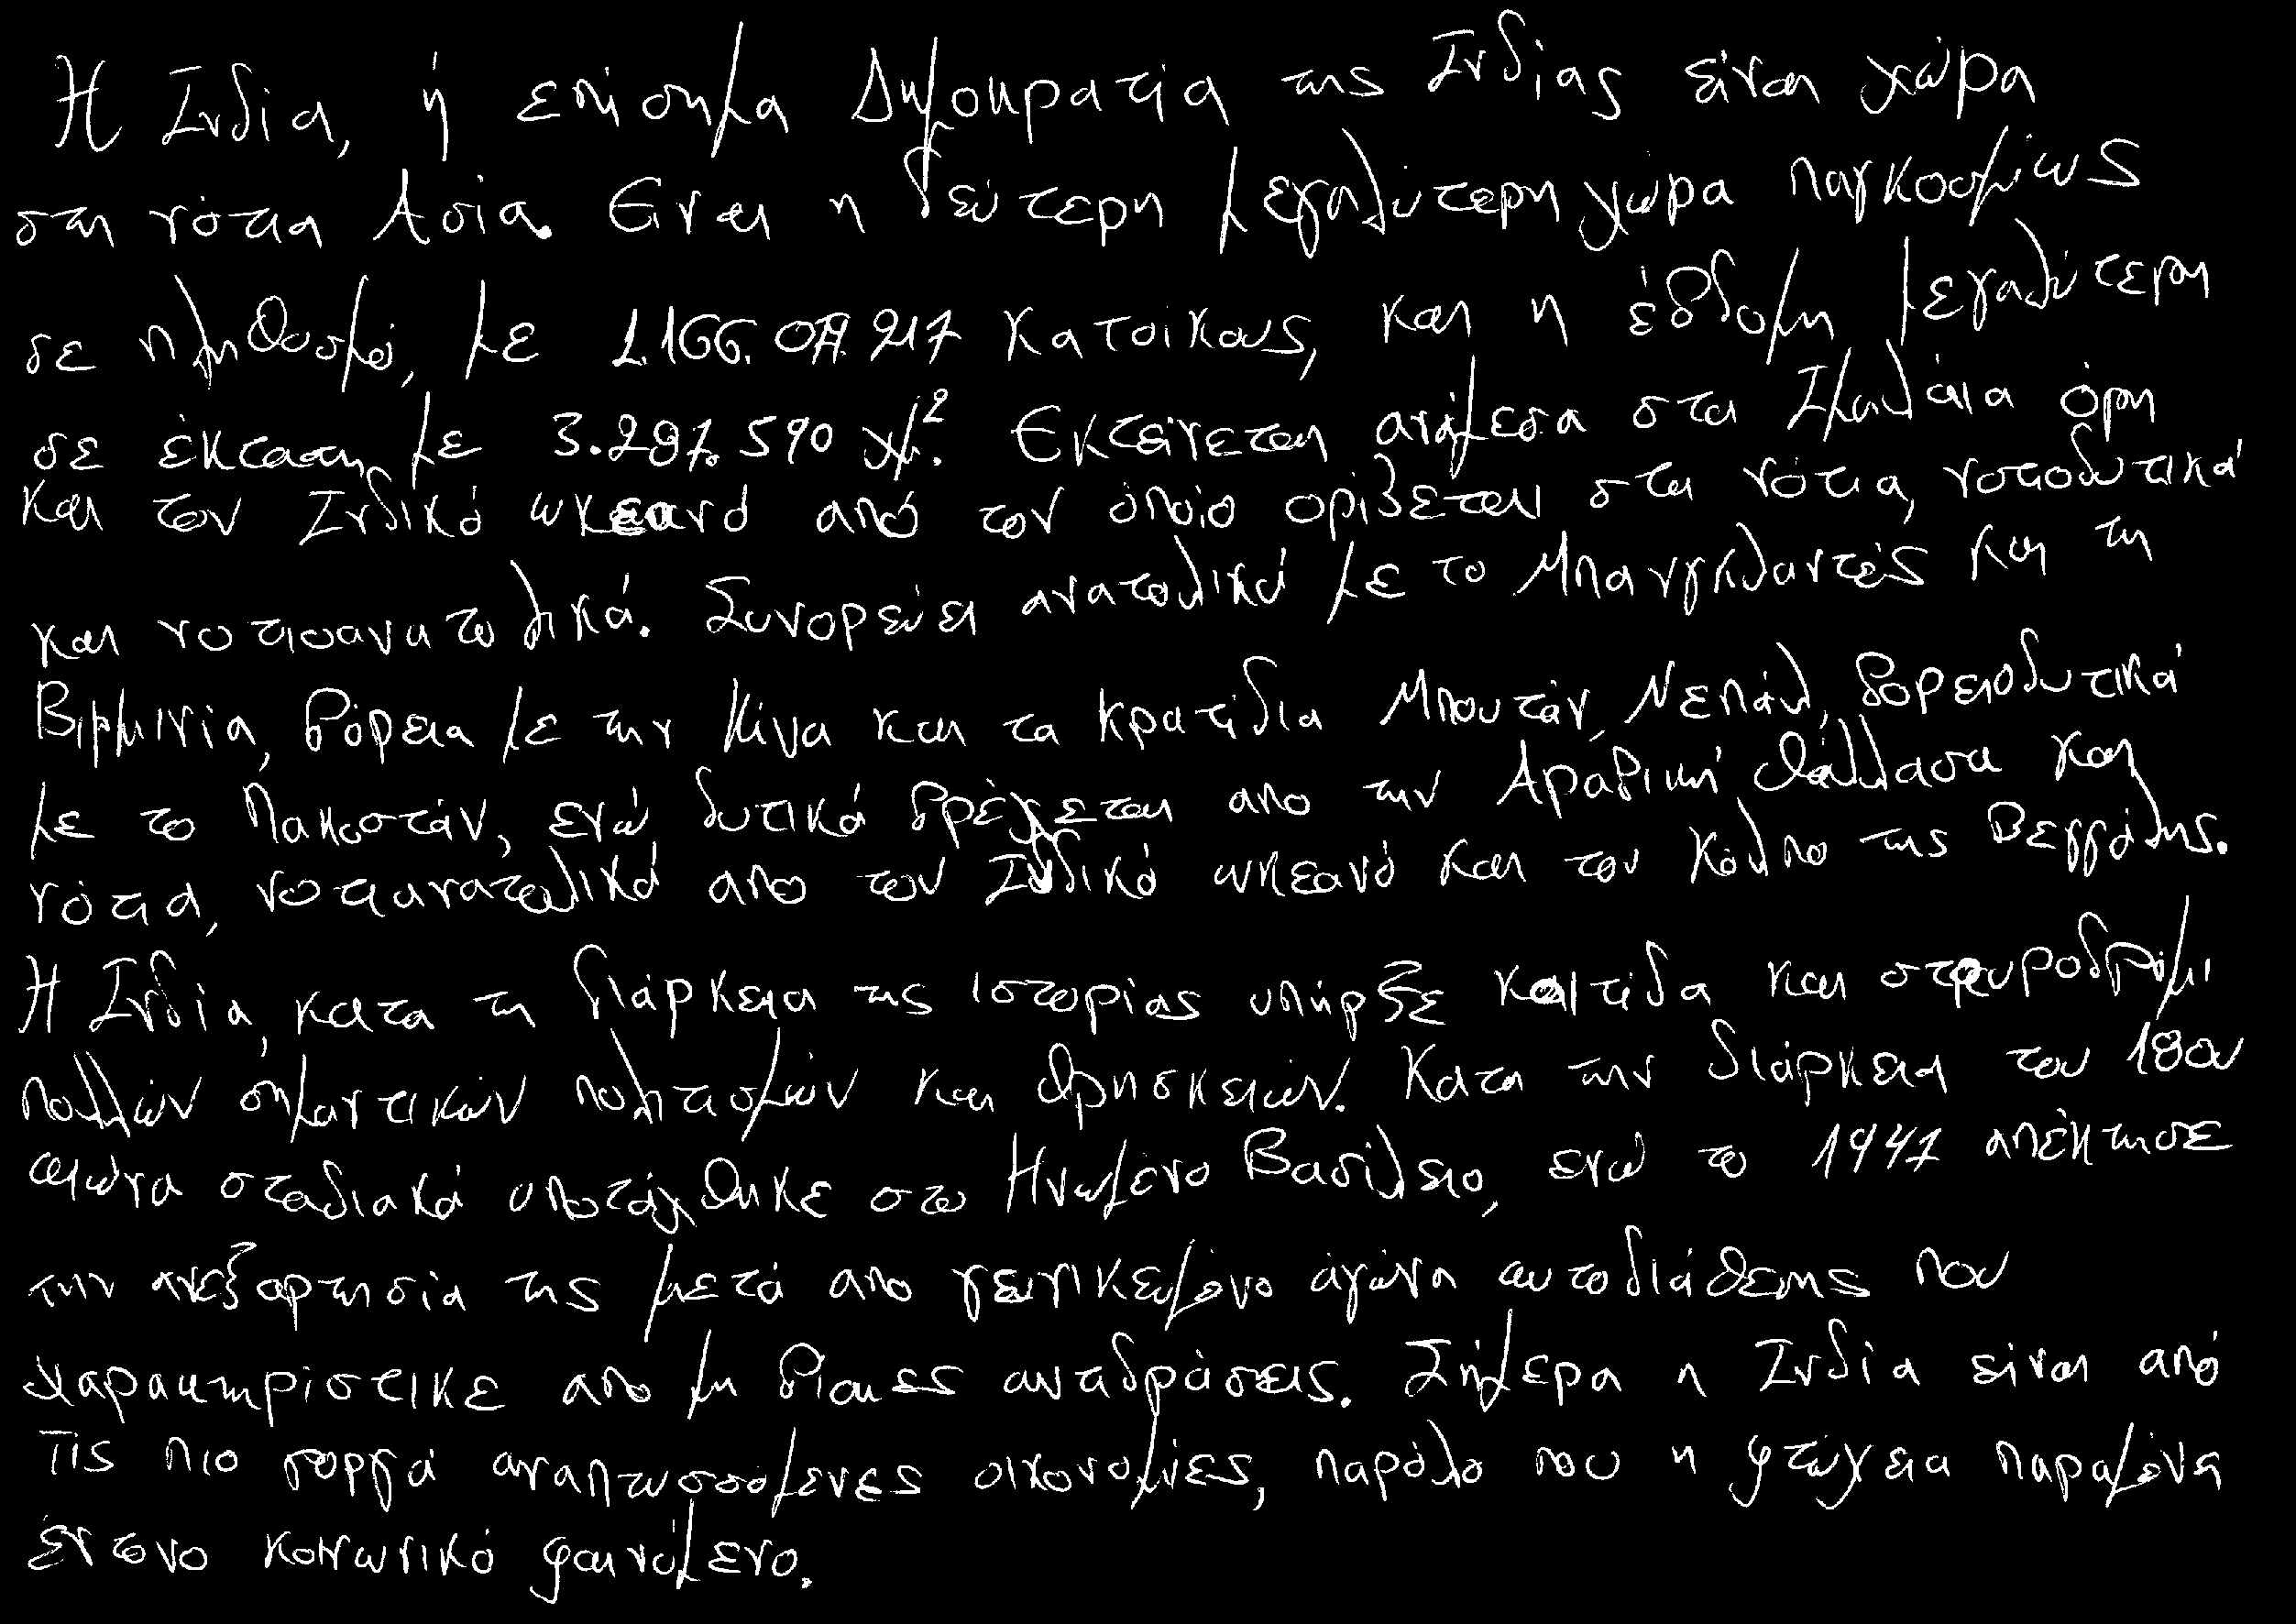 Η Ινδία, ή επίσημα Δημοκρατία της Ινδίας είναι χώρα
στη νότια Ασία. Είναι η δεύτερη μεγαλύτερη χώρα παγκοσμίως
σε πληθυσμό, με 1.166.079.217 κατοίκους, και η έβδομη μεγαλύτερη
σε έκταση, με 3.287.590 χμ². Εκτείνεται ανάμεσα στα Ιμαλάια όρη
και τον Ινδικό ωκεανό από τον όποίο ορίζεται στα νότια, νοτιοδυτικά
και νοτιοανατολικά. Συνορεύει ανατολικά με το Μπανγκλαντές και τη
Βιρμινία, βόρεια με την Κίνα και τα κρατίδια Μπουτάν, Νεπάλ, βορειοδυτικά
με το Πακιστάν, ενώ δυτικά βρέχεται απο την Αραβική θάλλασα και
νότια, νοτιανατολικά απο τον Ινδικό ωκεανό και τον Κόλπο της Βεγγάλης.
Η Ινδία, κατα τη διάρκεια της ιστορίας υπήρξε κοιτίδα και σταυροδρόμι
πολλών σημαντικών πολιτισμών και θρησκειών. Κατα την διάρκεια του 18ου
αιώνα σταδιακά υποτάχθηκε στο Ηνωμένο Βασίλειο, ενώ το 1947 απέκτησε
την ανεξαρτησία της μετά απο γενικευμένο άγώνα αυτοδιάθεσης που
χαρακτηρίστικε απο μη βίαιες αντιδράσεις. Σήμερα η Ινδία είναι από
τις πιο γοργά αναπτυσσόμενες οικονομίες, παρόλο που η φτώχεια παραμένει
έντονο κοινωνικό φαινόμενο.